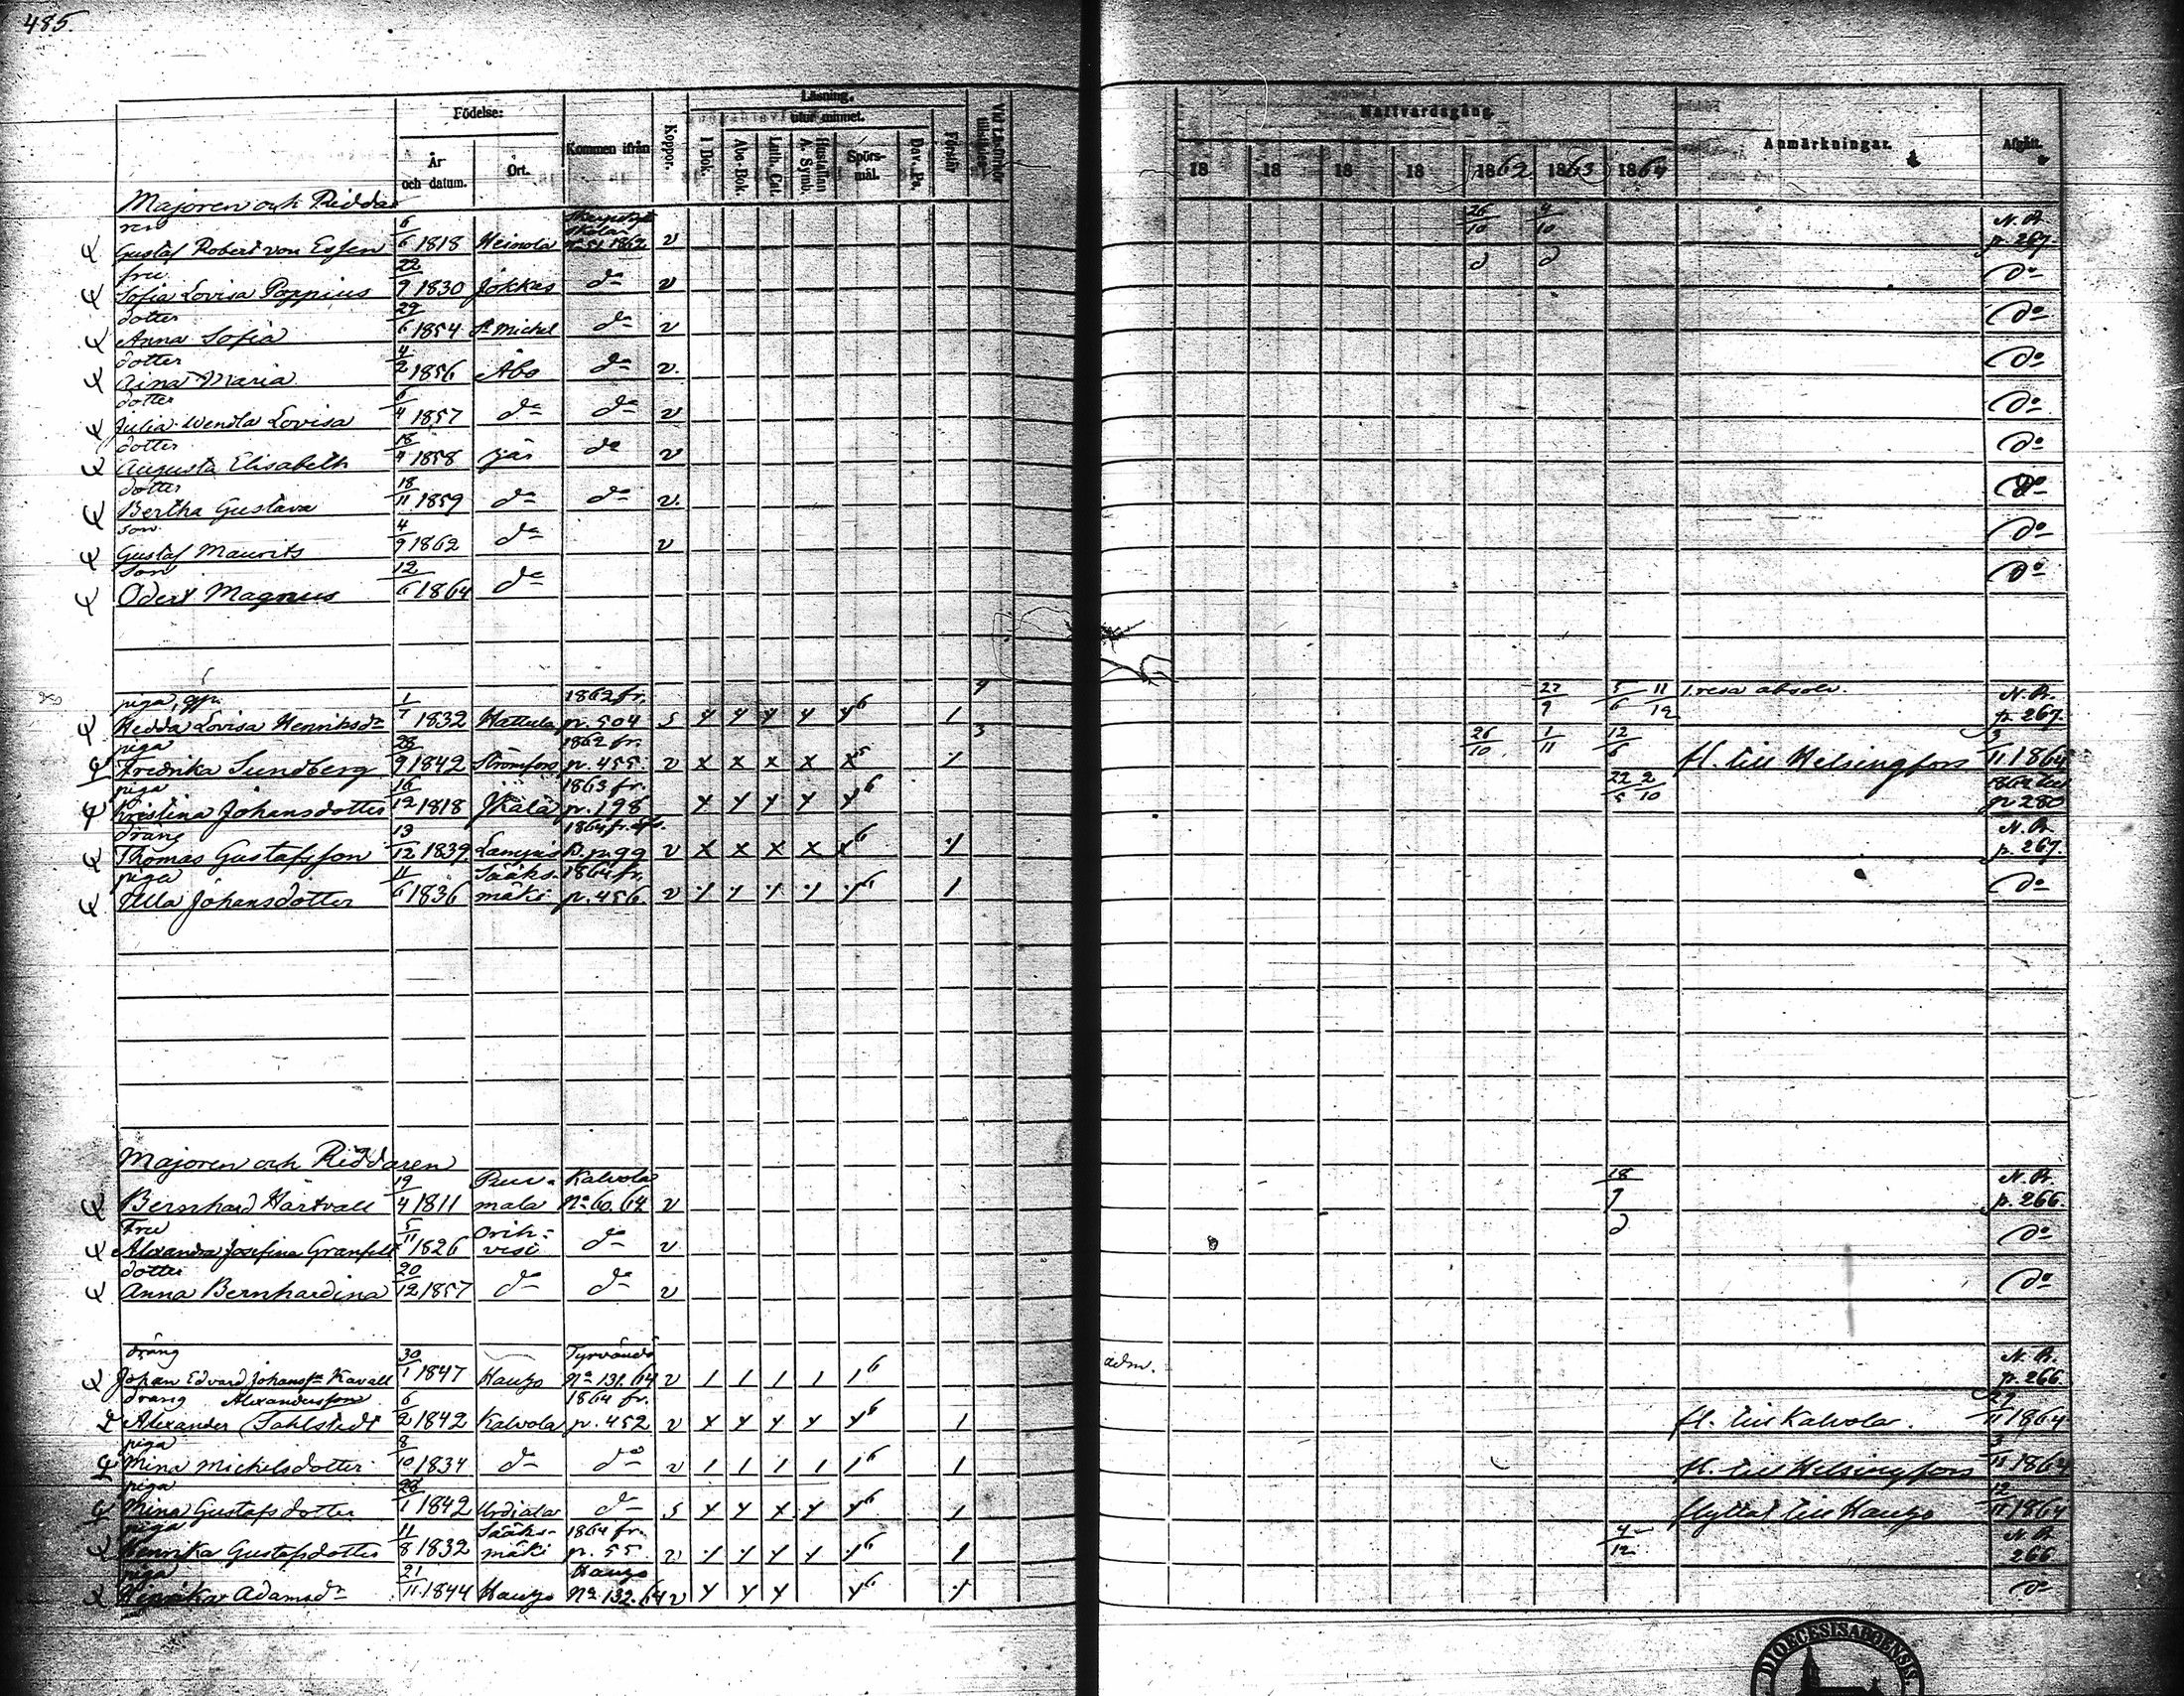 485.
Födelse:
Läsning.
Nattvardsgång.
År och datum.
Ort.
Kommen ifrån
Koppor.
I Bok.
utur minnet.
Abc-Bok.
Luth. Cat.
Hustaflan A. Symb.
Spörsmål.
Dav. Ps.
Förstår
18 18 18 18 1862 1863 1864
Anmärkningar.
Afgått.
Majoren och Riddaren
Gustaf Robert von Essen 6/6 1818 Heinola 1862 v 26/10 4/10 N.B. p. 267.
fru
Sofia Lovisa Poppius 22/9 1830 Jokkas do v do
dotter
Anna Sofia 29/6 1854 St Michel do v do
dotter
Aina Maria 4/2 1856 Åbo do v. do
dotter
Julia Wendla Lovisa 6/4 1857 do do v do
dotter
Augusta Elisabeth 18/4 1858 här do v do
dotter
Bertha Gustava 18/11 1859 do do v. do
son
Gustaf Maurits 4/9 1862 do v do
son
Odert Magnus 12/6 1864 do do
piga, 1862 fr. 4
Hedda Lovisa Henriksdr 1/7 1832 Hattula p. 504 s 6 27/9 5/6 11/12 1 resa absolv. N.B. p. 267.
piga 1862 fr. 3
Fredrika Sundberg 28/9 1842 Strömfors p. 455 v x x x x x5 26/10 1/11 12/6 fl. till Helsingfors 3/11 1864
piga 1863 fr.
Kristina Johansdotter 16/12 1818 p. 198 6 22/5 2/10 1864 till p 280
dräng
Thomas Gustafsson 13/12 1839 Lampis p. 99 v x x x x x6 N.B. p. 267.
piga 1864 fr.
Ulla Johansdotter 11/6 1836 Sääksmäki p. 456. v 6 do
Majoren och Riddaren
Bernhard Hartvall 19/4 1811 Kalvola No 60. 64 v 18/7 N.B. p. 266.
Fru
Alexandra Josefina Granfelt 5/11 1826 Orihvesi do v do
dotter
Anna Bernhardina 20/12 1857 do do v do
dräng Tyrvändö
Johan Edvard Johansson Kavall 30/1 1847 Hauho No 131. 64 v 1 1 1 1 1 6 adm. N.B. p. 266.
dräng Alexandersson 1864 fr.
Alexander Dahlstedt 6/2 1842 Kalvola p. 452 v 6 1 fl. till Kalvola. 29/11 1864
piga
Mina Michelsdotter 8/10 1834 do do v 1 1 1 1 1 6 1 fl. till Helsingfors 3/11 1864
piga
Mina Gustafsdotter 28/1 1842 Urdiala do s 6 1 flyttat till Hauho 12/11 1864
piga 1864 fr.
Henrika Gustafsdotter 11/8 1832 Sääksmäki p. 55 v 6 1 4/12 N.B. 266
piga Hauho
Henrika Adamsdr 21/11 1844 Hauho No 132. 64 v 6 do
DIOECESIS ABOENSIS